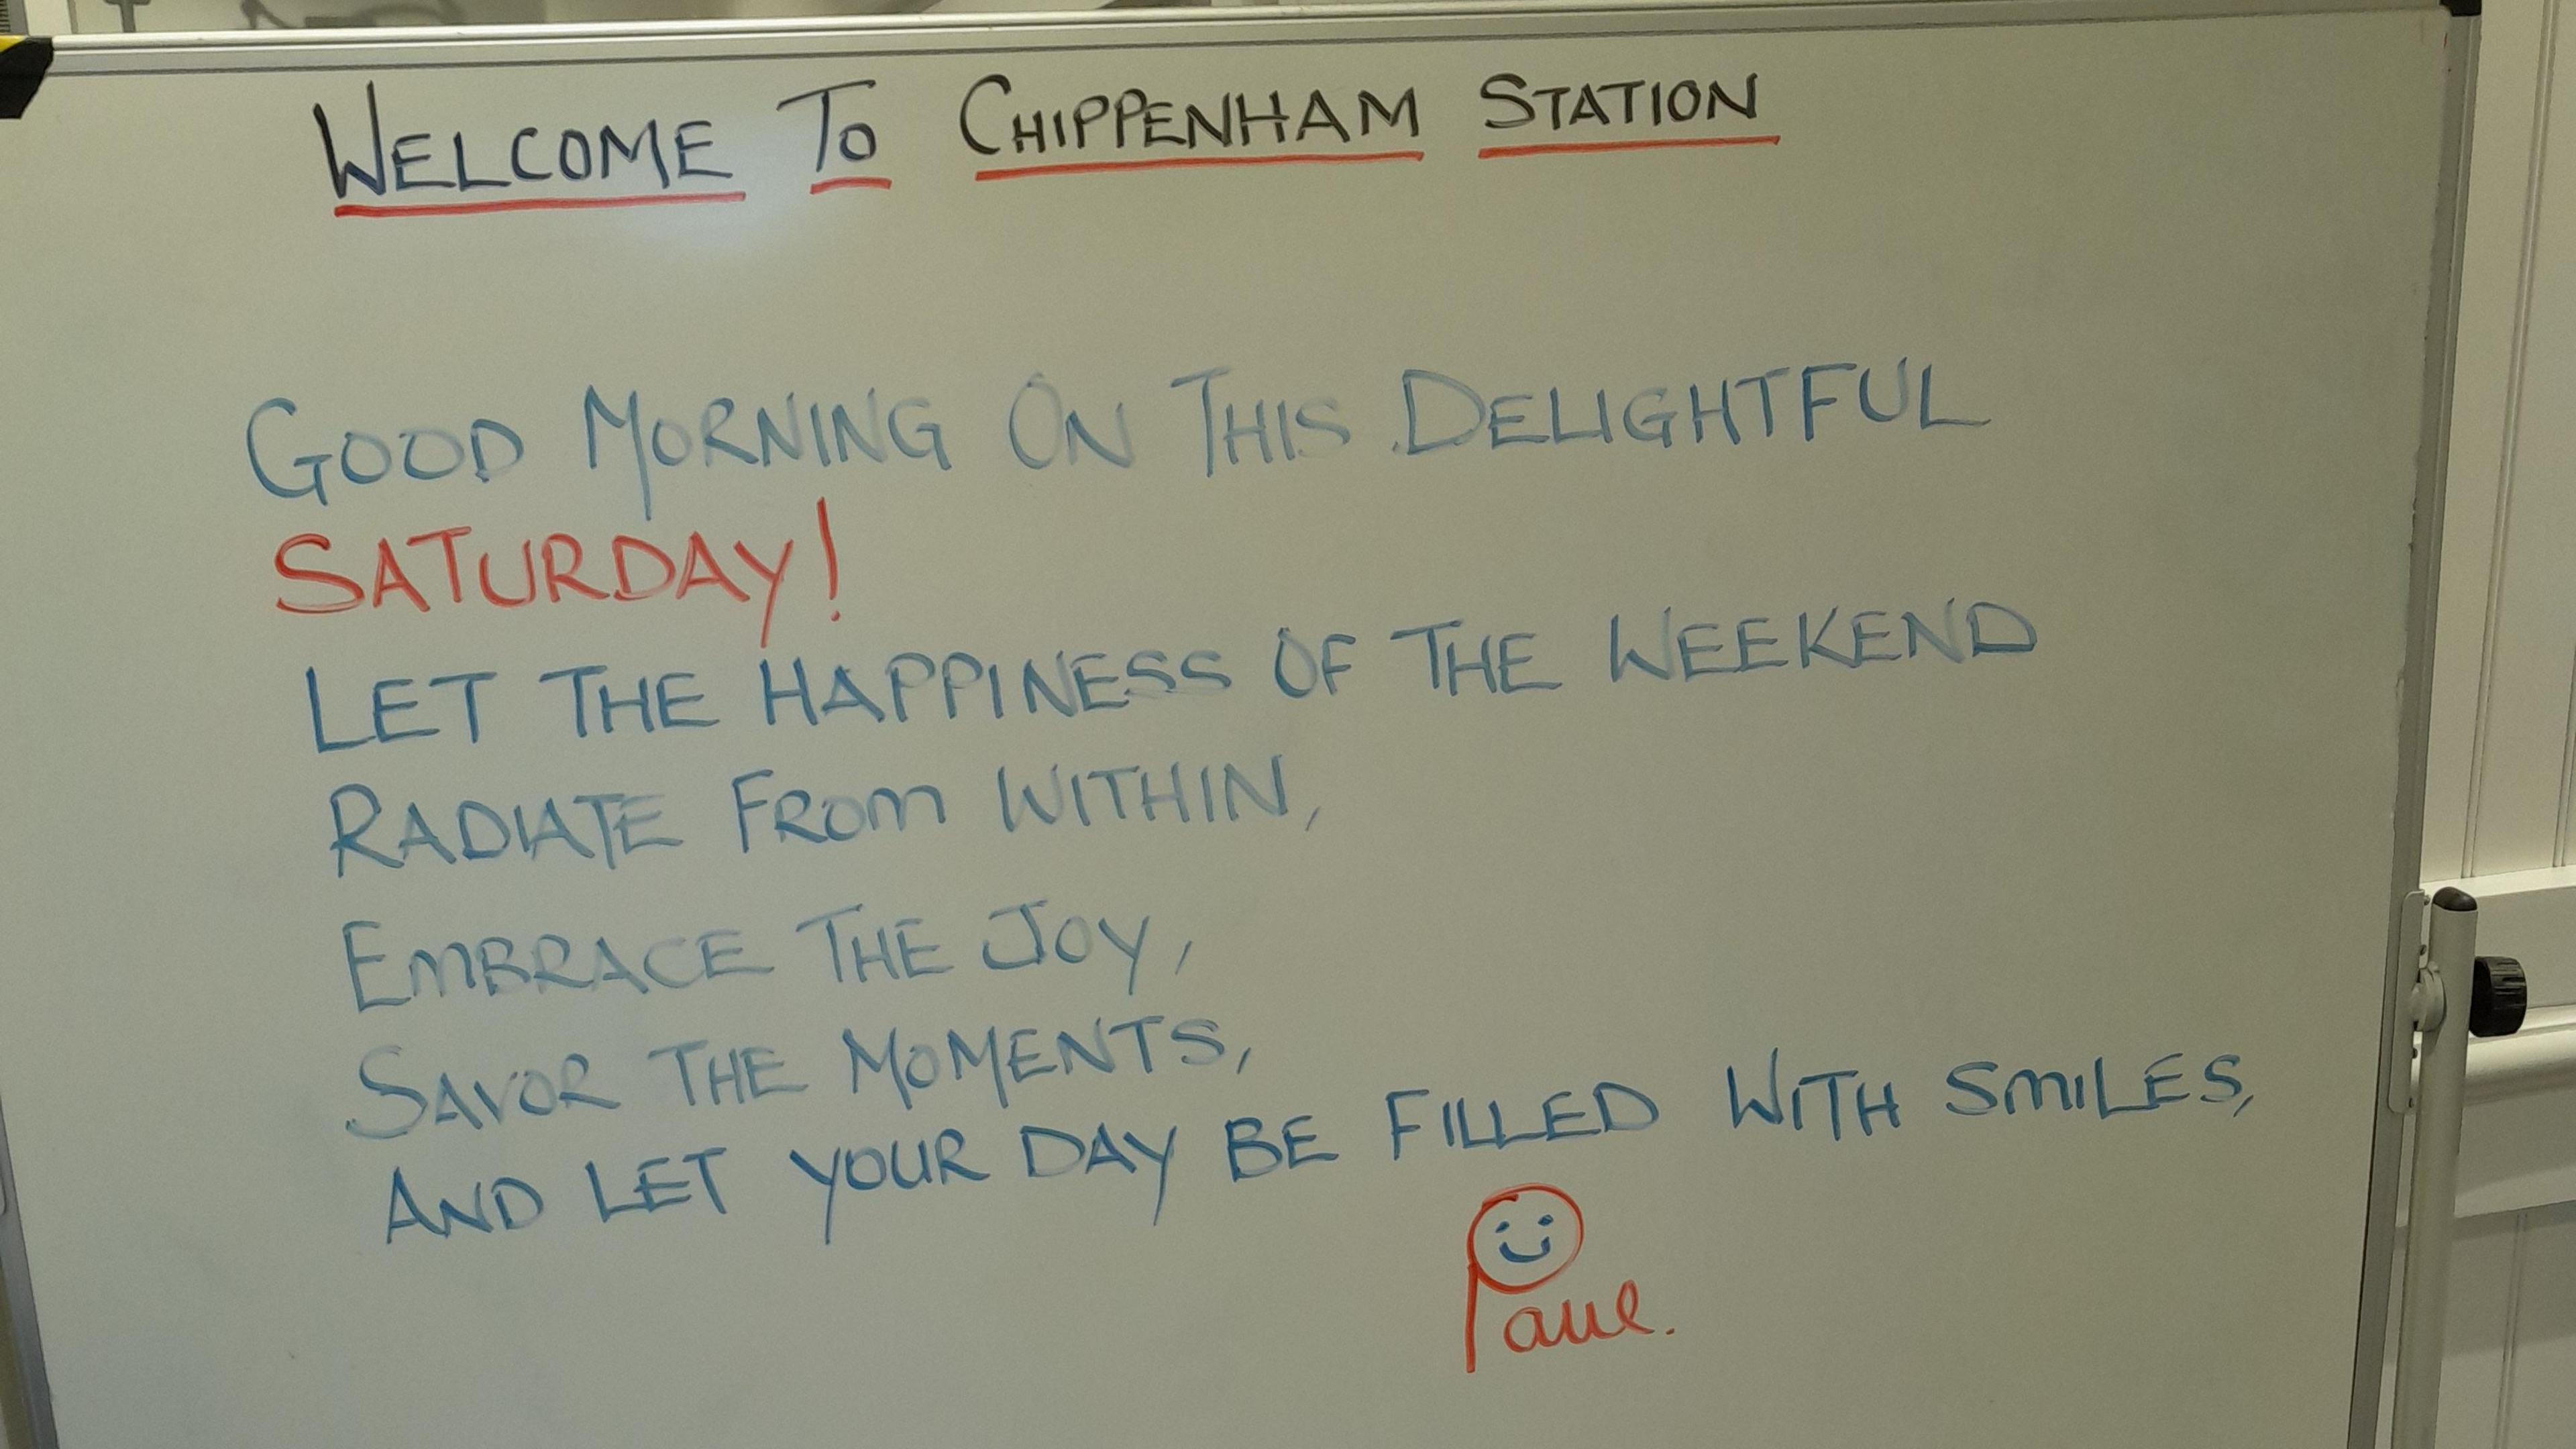 WELCOME TO CHIPPENHAM STATION
GOOD MORNING ON THIS DELIGHTFUL
SATURDAY!
LET THE HAPPINESS OF THE WEEKEND
RADIATE FROM WITHIN,
EMBRACE THE JOY,
SAVOR THE MOMENTS,
AND LET YOUR DAY BE FILLED WITH SMILES,
Paul.